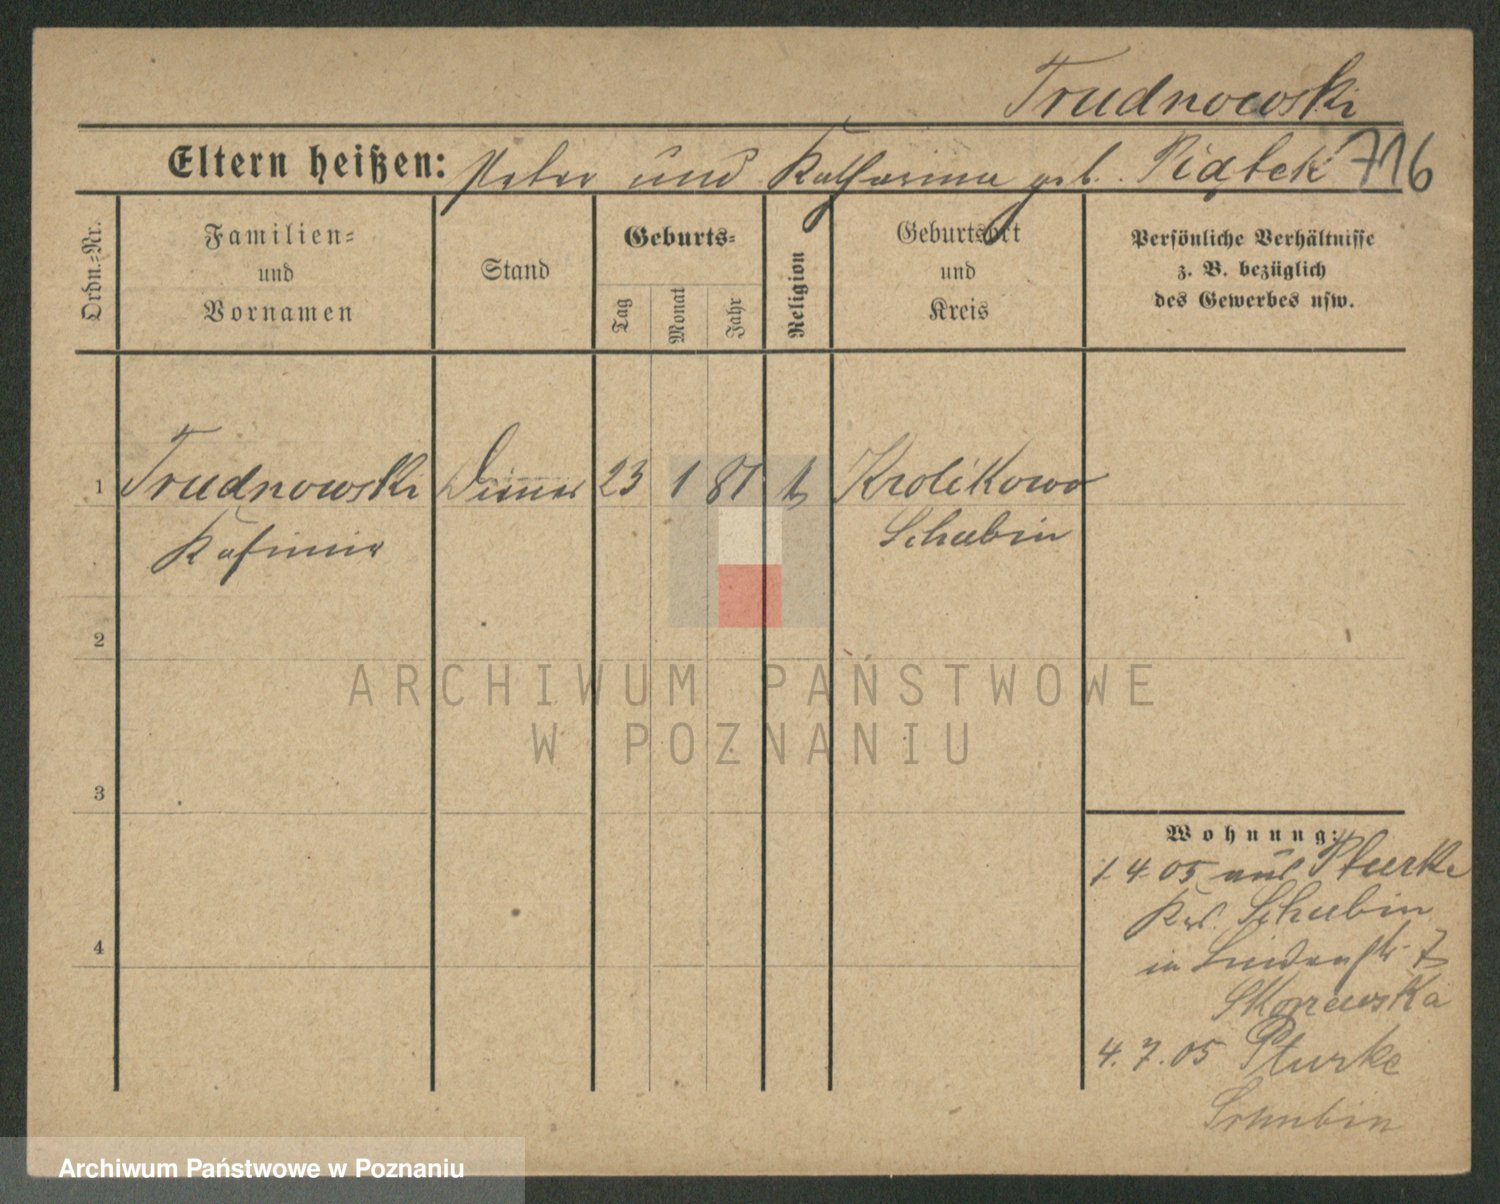 Trudnowski
Eltern heißen: Peter und Katharina geb. Piątek 716
Ordn.-Nr.
Familien-
und
Vornamen
Stand
Geburts-
Tag
Monat
Jahr
Religion
Geburtsort
und
Kreis
Persönliche Verhältnisse
z. B. bezüglich
des Gewerbes usw.
1 Trudnowski Diener 23 1 81 k Krolikowo
Kasimir Schubin
2
3
4
Wohnung:
1 4 05 aus Pturke
Krs. Schubin
in Lindenstr 7
Skorzewska
4. 7. 05 Pturke
Schubin
ARCHIWUM PAŃSTWOWE
W POZNANIU
Archiwum Państwowe w Poznaniu